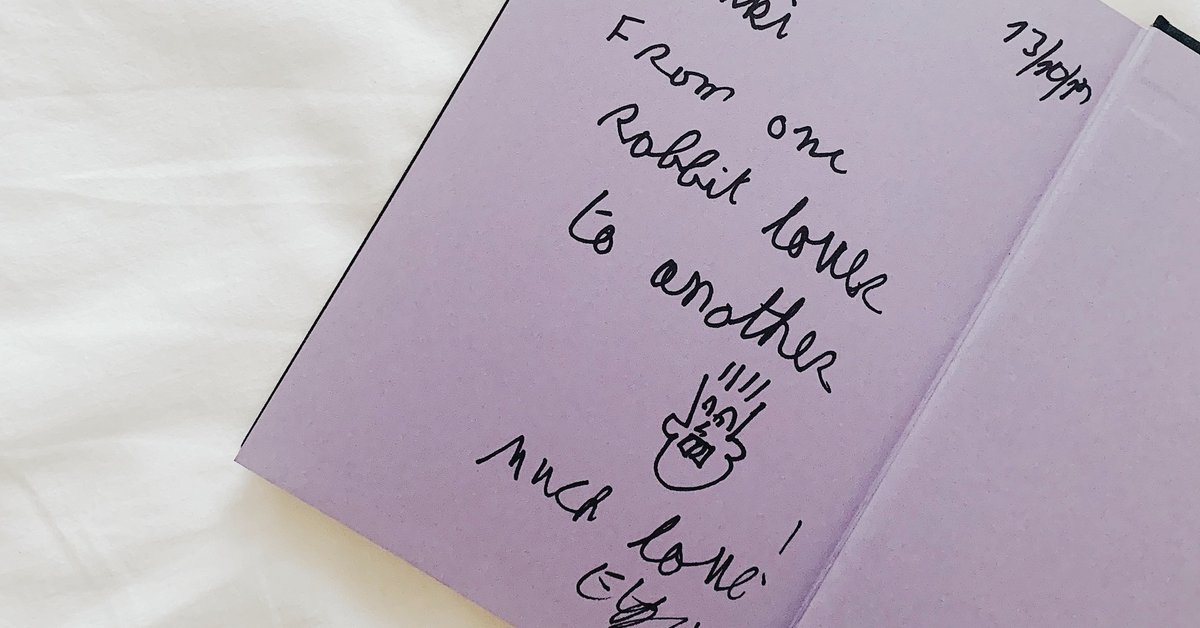 13/10/19
From one
Rabbit lover
to another
much love!